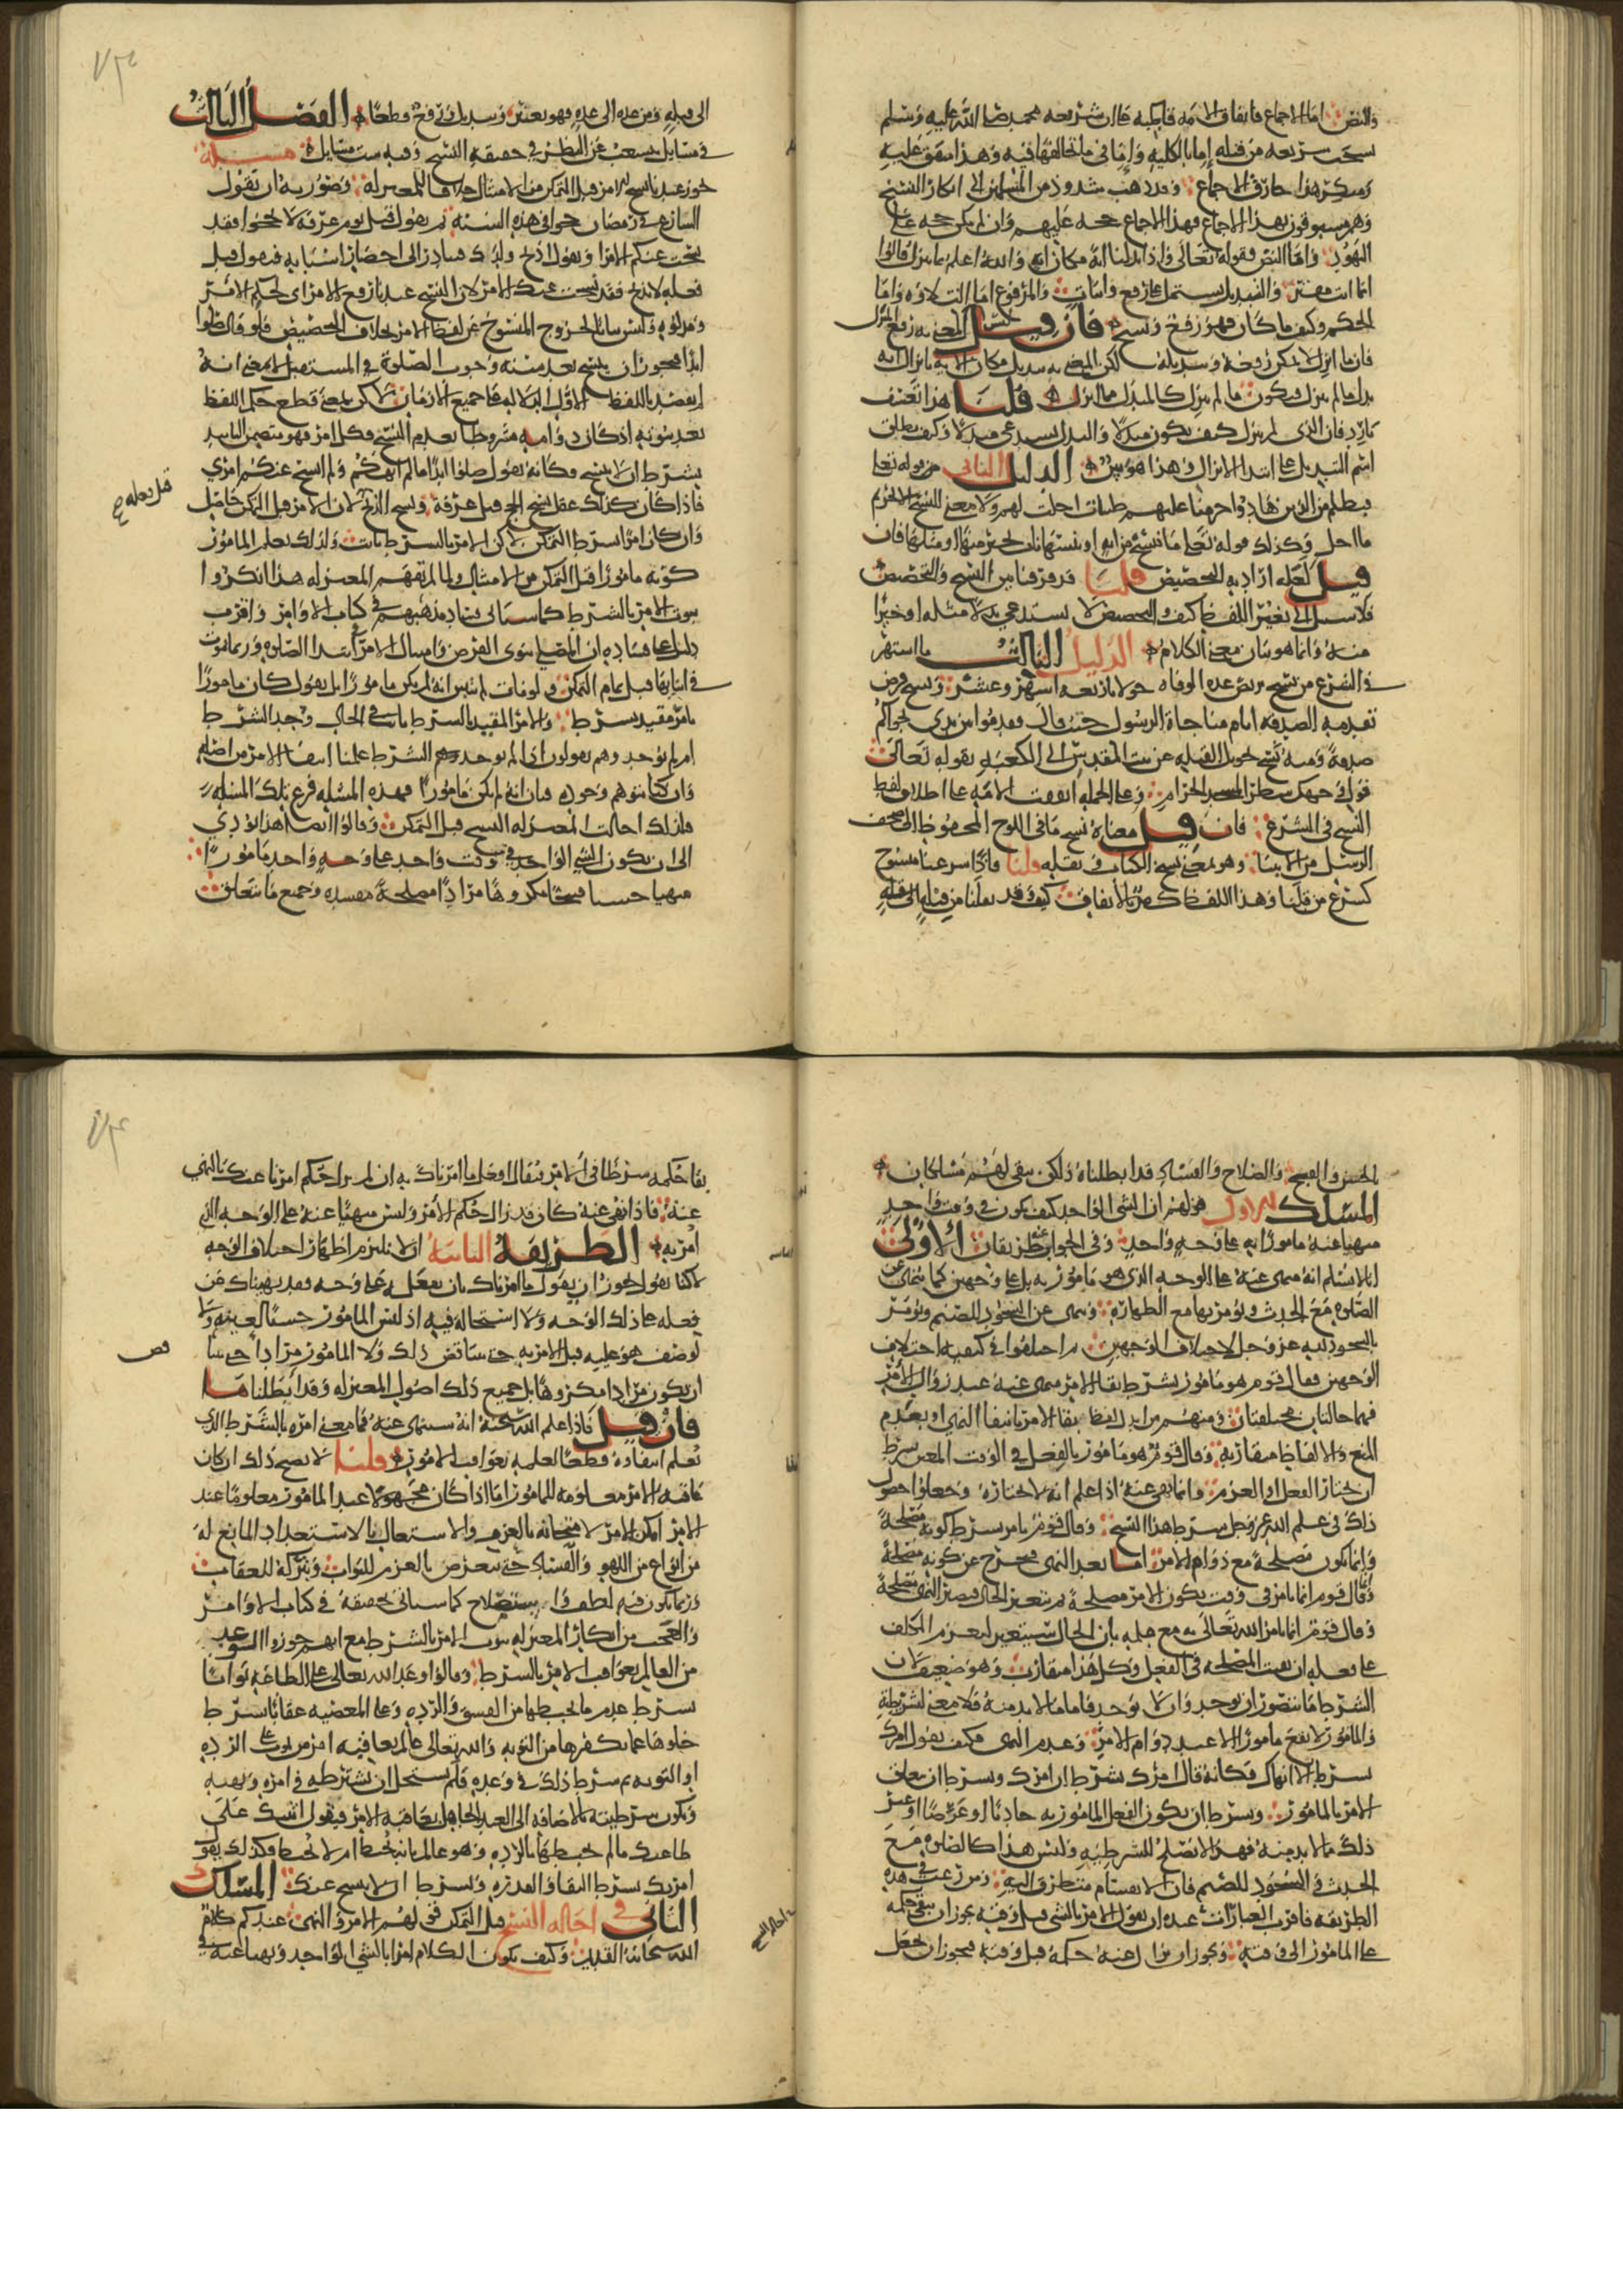 والنص اما الاجماع فاتفاق الامة قاطبة فان شريعة محمد صلى الله عليه وسلم
نسخت شريعة من قبله اما بالكلية واما في ما تخالفها فيه وهذا متفق عليه
ومنكر هذا خارق الاجماع وقد ذهب شذوذ من المسلمين الى انكار النسخ
وهم مسبوقون بهذا الاجماع فهذا الاجماع حجة عليهم وان لم يكن حجة على
اليهود واما النص فقوله تعالى واذا بدلنا اية مكان اية والله اعلم بما ينزل قالوا
انما انت مفتر والتبديل يشتمل على رفع واثبات والمرفوع اما التلاوة واما
الحكم وكيف ما كان فهو رفع ونسخ فان قيل ليس المعنى به رفع المنزل
فان ما انزل لا يمكن رفعه وتبديله لكن المعنى به تبديل مكان الاية بانزال اية
بدل ما لم ينزل فيكون ما لم ينزل كالمبدل بما انزل قلنا هذا تعسف
بارد فان الذي لم ينزل كيف يكون مبدلا والبدل يستدعي مبدلا وكيف يطلق
اسم التبديل على ابتداء الانزال وهذا هوس الدليل الثاني من قوله تعالى
فبظلم من الذين هادوا حرمنا عليهم طيبات احلت لهم ولا معنى للنسخ الا تحريم
ما احل وكذلك قوله تعالى ما ننسخ من اية او ننسها نات بخير منها او مثلها فان
قيل لعله اراد به التخصيص قلنا قد فرقنا بين النسخ والتخصيص
فلا سبيل الى تغيير اللفظ كيف والتخصيص لا يستدعي بدلا مثله او خيرا
منه وانما هو بيان معنى الكلام الدليل الثالث ما اشتهر
في الشرع من نسخ تربص عدة الوفاة حولا باربعة اشهر وعشر ونسخ فرض
تقديم الصدقة امام مناجاة الرسول حيث قال فقدموا بين يدي نجواكم
صدقة ومنه نسخ تحويل القبلة عن بيت المقدس الى الكعبة بقوله تعالى
فول وجهك شطر المسجد الحرام وعلى الجملة اتفقت الامة على اطلاق لفظ
النسخ في الشرع فان قيل معناه نسخ ما في اللوح المحفوظ الى صحف
الرسل من الانبياء وهو بمعنى نسخ الكتاب ونقله قلنا فاذا شرعنا منسوخ
كشرع من قبلنا وهذا اللفظ كفر بالاتفاق كيف وقد نقلنا من قبلة الى قبلة
الى قبلة ومن عدة الى عدة فهو تغيير وتبديل ورفع قطعا الفصل الثالث
في مسائل يتشعب عن النظر في حقيقة النسخ وفيه ست مسائل مسئلة
يجوز عندنا نسخ الامر قبل التمكن من الامتثال خلافا للمعتزلة وصورته ان يقول
الشارع في رمضان حجوا في هذه السنة ثم يقول قبل يوم عرفة لا تحجوا فقد
نسخت عنكم الامر او يقول اذبح ولدك فيبادر الى احضار اسبابه فيقول قبل
فعله لا تذبح فقد نسخت عنك الامر لان النسخ عندنا رفع الامر اي لحكم الامر
ومدلوله وليس بيانا لخروج المنسوخ عن لفظ الامر بخلاف التخصيص فلو قال صلوا
ابدا فيجوز ان ينسخ بعد سنة وجوب الصلوة في المستقبل لا بمعنى انه
لم يقصد باللفظ الاول الدلالة على جميع الازمان لكن بمعنى قطع حكم اللفظ
بعد ثبوته اذ كان دوامه مشروطا بعدم النسخ فكل امر فهو متضمن التابيد
بشرط ان لا ينسخ فكانه يقول صلوا ابدا ما لم انهكم ولم انسخ عنكم امري
فاذا كان كذلك عقل نسخ الحج قبل عرفة ونسخ الذبح لان الامر قبل التمكن حاصل
قبل فعله
وان كان امرا بشرط التمكن لكن الامر بالشرط ثابت ولذلك يعلم المامور
كونه مامورا قبل التمكن من الامتثال ولما لم تفهم المعتزلة هذا انكروا
ثبوت الامر بالشرط كما سياتي فساد مذهبهم في كتاب الاوامر واقرب
دليل على فساده ان المصلي ينوي الفرض وامتثال الامر في ابتداء الصلوة وربما يموت
في اثنائها قبل تمام التمكن ولو مات لم نتبين انه لم يكن مامورا بل نقول كان مامورا
بامر مقيد بشرط والامر المقيد بالشرط ثابت في الحال وجد الشرط
ام لم يوجد وهم يقولون اذا لم يوجد الشرط علمنا انتفاء الامر من اصله
وانا كنا نتوهم وجوده فبان انه لم يكن مامورا فهذه المسئلة فرع تلك المسئلة
فلذلك احالت المعتزلة النسخ قبل التمكن وقالوا ايضا هذا يؤدي
الى ان يكون الشي الواحد في وقت واحد على وجه واحد مامورا
منهيا حسنا قبيحا مكروها مرادا مصلحة مفسدة وجميع ما يتعلق
بالحسن والقبح والصلاح والفساد قد ابطلناه ولكن يبقى لهم مسلكان
المسلك الاول قولهم ان الشي الواحد كيف يكون في وقت واحد
منهيا عنه مامورا به على وجه واحد وفي الجواب عنه طريقان الاولى
انا لا نسلم انه منهي عنه على الوجه الذي هو مامور به بل على وجهين كما ينهى عن
الصلوة مع الحدث ويؤمر بها مع الطهارة وينهى عن السجود للصنم ويؤمر
بالسجود لله عز وجل لاختلاف الوجهين ثم اختلفوا في كيفية اختلاف
الوجهين فقال قوم هو مامور بشرط بقاء الامر منهي عنه عند زوال الامر
فهما حالتان مختلفتان ومنهم من ابدل لفظ بقاء الامر بانتفاء النهي او بعدم
المنع والالفاظ متقاربة وقال قوم هو مامور بالفعل في الوقت المعين بشرط
ان يختار الفعل او العزم وانما ينهى عنه اذا علم انه لا يختاره وجعلوا حصول
ذلك في علم الله عز وجل بشرط هذا النسخ وقال قوم يامر بشرط كونه مصلحة
وانما يكون مصلحة مع دوام الامر اما بعد النهي فيخرج عن كونه مصلحة
وقال قوم انما يامر في وقت يكون الامر مصلحة ثم يتغير الحال فيصير النهي مصلحة
وقال قوم انما يامر الله تعالى به مع علمه بان الحال سيتغير ليعزم المكلف
على فعله ان بقيت المصلحة في الفعل وكل هذا متقارب وهو ضعيف لان
الشرط ما يتصور ان يوجد وان لا يوجد فاما ما لا بد منه فلا معنى لشرطيته
والمامور لا يقع مامورا الا عند دوام الامر وعدم النهي فكيف يقول امرك
بشرط ان لا انهاك فكانه قال امرك بشرط ان امرك وبشرط ان يتعلق
الامر بالمامور وبشرط ان يكون الفعل المامور به حادثا او عرضا او غير
ذلك مما لا بد منه فهذا لا يصلح للشرطية وليس هذا كالصلوة مع
الحدث والسجود للصنم فان الانقسام يتطرق اليه ومن رغب في هذه
الطريقة فاقرب العبارات عنده ان يقول الامر بالشي قبل وقته يجوز ان يبقى حكمه
على المامور الى وقته ويجوز ان يزال عنه حكمه قبل وقته فيجوز ان يجعل
بقاء حكمه شرطا في الامر فيقال افعل ما امرناك به ان لم يزل حكم امرنا عنك بالنهي
عنه فاذا نهى عنه كان قد زال حكم الامر وليس منهيا عنه على الوجه الذي
امر به الطريقة الثانية انا لا نلتزم اظهار اختلاف الوجه
لكنا نقول يجوز ان يقول ما امرناك بان تفعله على وجه فقد نهيناك عن
فعله على ذلك الوجه ولا استحالة فيه اذ ليس المامور حسنا لعينه ولا
لوصف هو عليه قبل الامر به حتى يتناقض ذلك ولا المامور مرادا حتى يتناقض
ان يكون مرادا مكروها بل جميع ذلك اصول المعتزلة وقد ابطلناها
فان قيل فاذا علم الله سبحنه انه سينهى عنه فما معنى امره بالشرط الذي
يعلم انتفاءه قطعا لعلمه بعواقب الامور قلنا لا يصح ذلك ان كان
عاقبة الامر معلومة للمامور اما اذا كان مجهولا عند المامور معلوما عند
الامر امكن الامر لامتحانه بالعزم والاشتغال بالاستعداد المانع له
من انواع من اللهو والفساد حتى يتعرض بالعزم للثواب وبتركه للعقاب
وربما يكون فيه لطف واستصلاح كما سياتي تحقيقه في كتاب الاوامر
والعجب من انكار المعتزلة ثبوت الامر بالشرط مع انهم جوزوا الوعد
من العالم بعواقب الامر بالشرط وقالوا وعد الله تعالى على الطاعة ثوابا
بشرط عدم ما يحبطها من الفسق والردة وعلى المعصية عقابا بشرط
خلوها عما يكفرها من التوبة والله تعالى عالم بعاقبة امر من يموت على الردة
او التوبة ثم شرط ذلك في وعده فلم يستحل ان يشترط في امره ونهيه
وتكون شرطيته بالاضافة الى العبد الجاهل بعاقبة الامر فيقول اثيبك على
طاعتك ما لم تحبطها بالردة وهو عالم بانه يحبط ام لا يحبط فكذلك يقول
امرتك بشرط البقاء والقدرة وبشرط ان لا ينسخ عنك المسلك
الثاني في احالة النسخ قبل التمكن قولهم الامر والنهي عندكم كلام
الله سبحانه القديم وكيف يكون الكلام امرا بالشي الواحد ونهيا عنه في